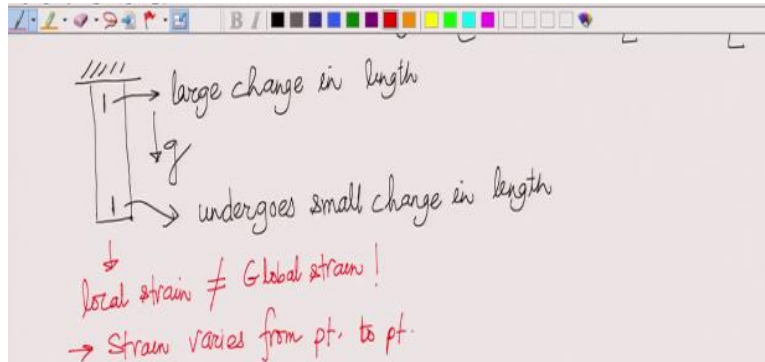 B I
large change in length
g
undergoes small change in length
local strain ≠ Global strain!
→ Strain varies from pt. to pt.